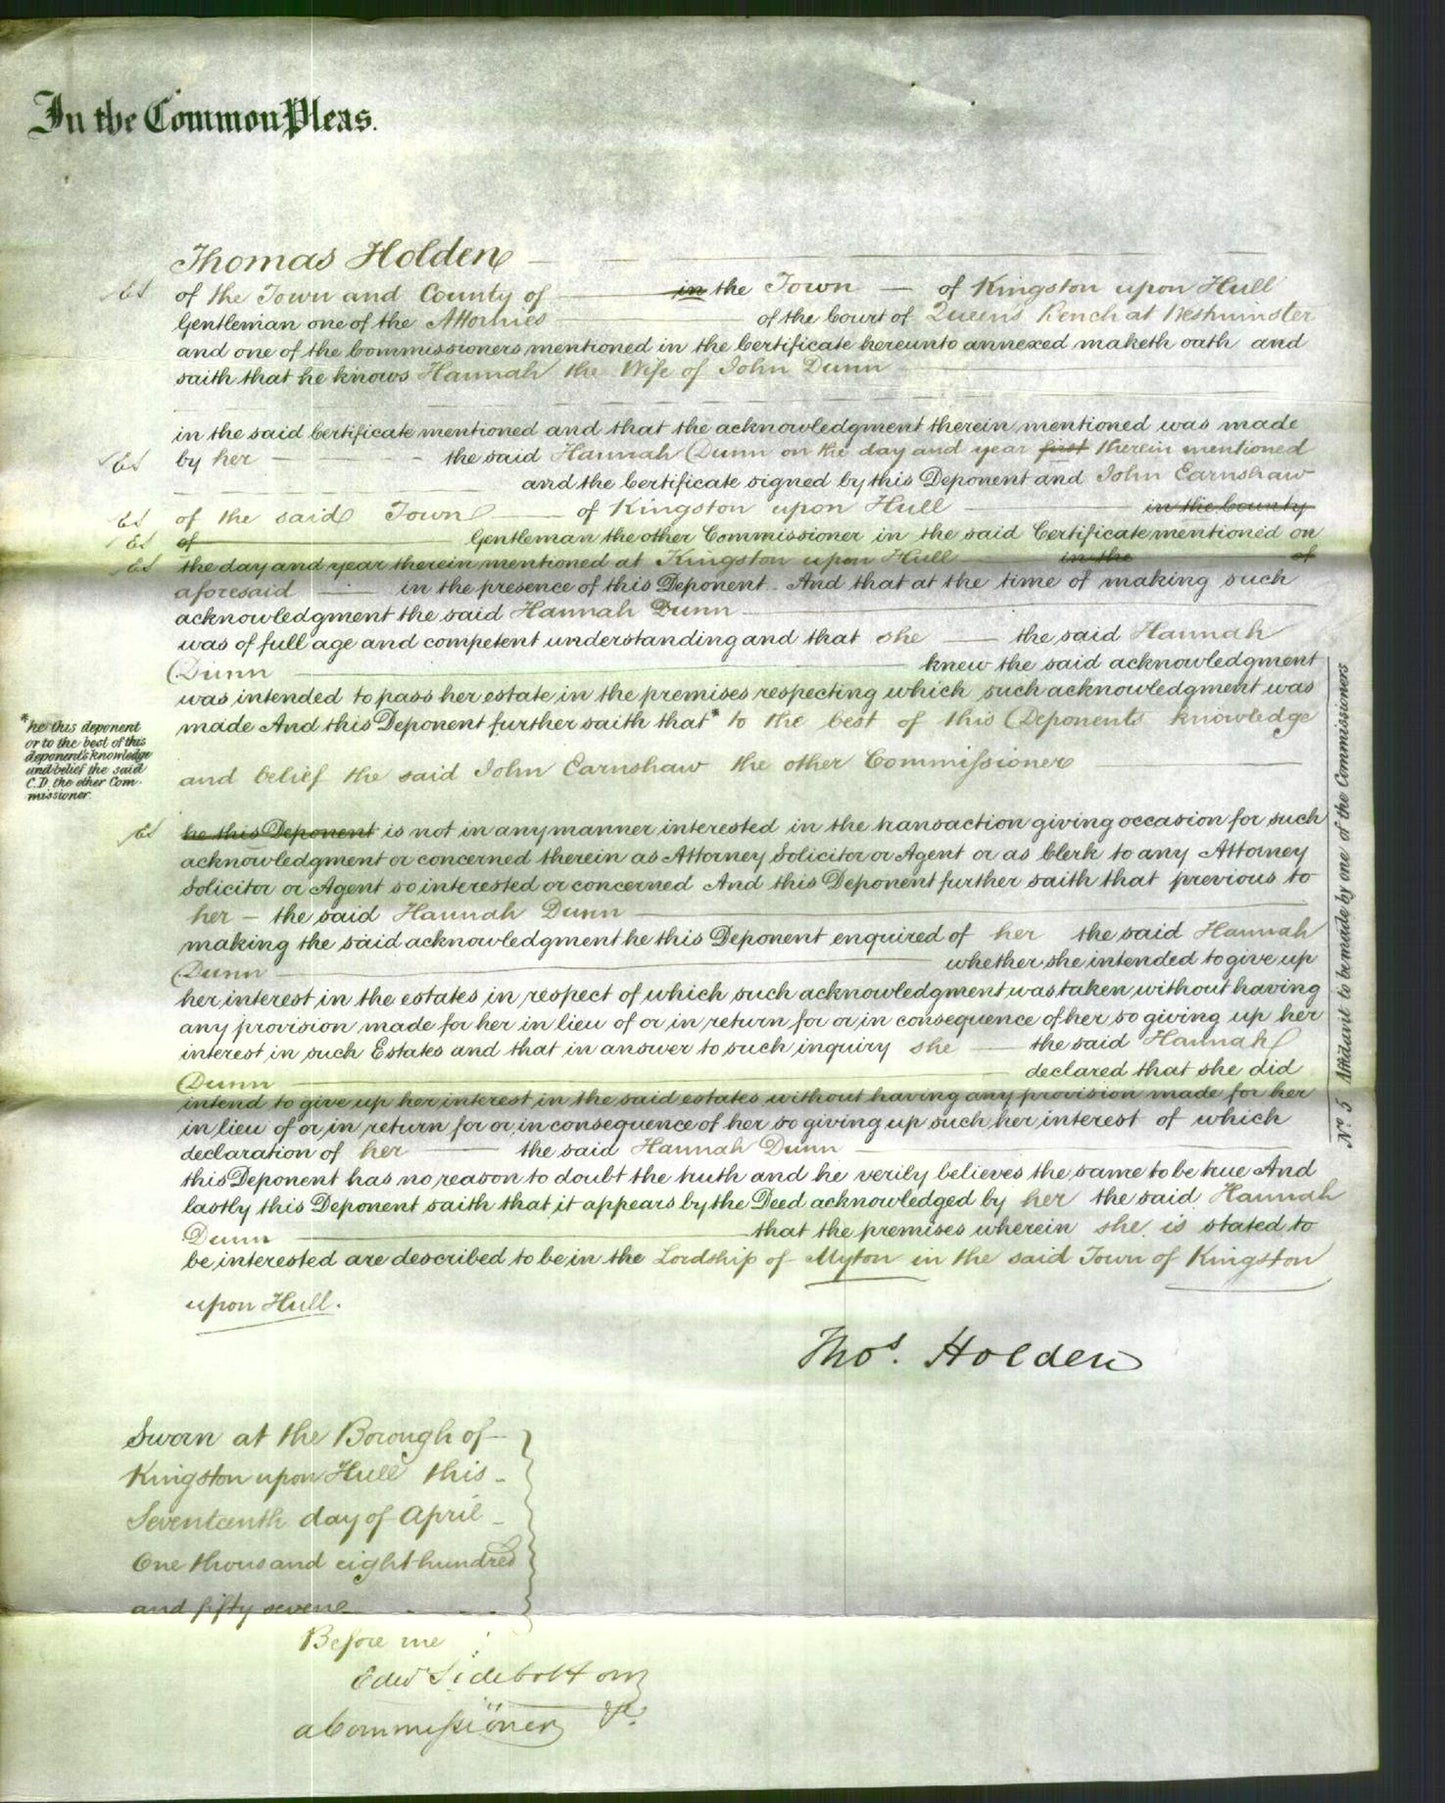 In the Common Pleas.
Thomas Holden
of the Town and County of in the Town of Kingston upon Hull
Gentleman one of the Attornies of the Court of Queens Bench at Westminster
and one of the Commissioners mentioned in the Certificate hereunto annexed maketh oath and
saith that he knows Hannah the Wife of John Dunn
in the said Certificate mentioned and that the acknowledgment therein mentioned was made
by her the said Hannah Dunn on the day and year first therein mentioned
and the Certificate signed by this Deponent and John Earnshaw
of the said Town of Kingston upon Hull in the County
of Gentleman the other Commissioner in the said Certificate mentioned on
the day and year therein mentioned at Kingston upon Hull in the of
aforesaid in the presence of this Deponent. And that at the time of making such
acknowledgment the said Hannah Dunn
was of full age and competent understanding and that she the said Hannah
Dunn knew the said acknowledgment
was intended to pass her estate in the premises respecting which such acknowledgment was
made And this Deponent further saith that* to the best of this Deponents knowledge
*he this deponent
or to the best of this
deponent's knowledge
and belief the said
C.D. the other Com-
missioner.
and belief the said John Earnshaw the other Commissioner
he this Deponent is not in any manner interested in the transaction giving occasion for such
acknowledgment or concerned therein as Attorney Solicitor or Agent or as Clerk to any Attorney
Solicitor or Agent so interested or concerned And this Deponent further saith that previous to
her the said Hannah Dunn
making the said acknowledgment he this Deponent enquired of her the said Hannah
Dunn whether she intended to give up
her interest in the estates in respect of which such acknowledgment was taken without having
any provision made for her in lieu of or in return for or in consequence of her so giving up her
interest in such Estates and that in answer to such inquiry she the said Hannah
Dunn declared that she did
intend to give up her interest in the said estates without having any provision made for her
in lieu of or in return for or in consequence of her so giving up such her interest of which
declaration of her the said Hannah Dunn
this Deponent has no reason to doubt the truth and he verily believes the same to be true And
lastly this Deponent saith that it appears by the Deed acknowledged by her the said Hannah
Dunn that the premises wherein she is stated to
be interested are described to be in the Lordship of Myton in the said Town of Kingston
upon Hull.
Thos. Holden
Sworn at the Borough of
Kingston upon Hull this
Seventeenth day of April
One thousand eight hundred
and fifty seven
Before me
Edwd Sidebottom
a Commissioner &c.
No. 5 Affidavit to be made by one of the Commissioners